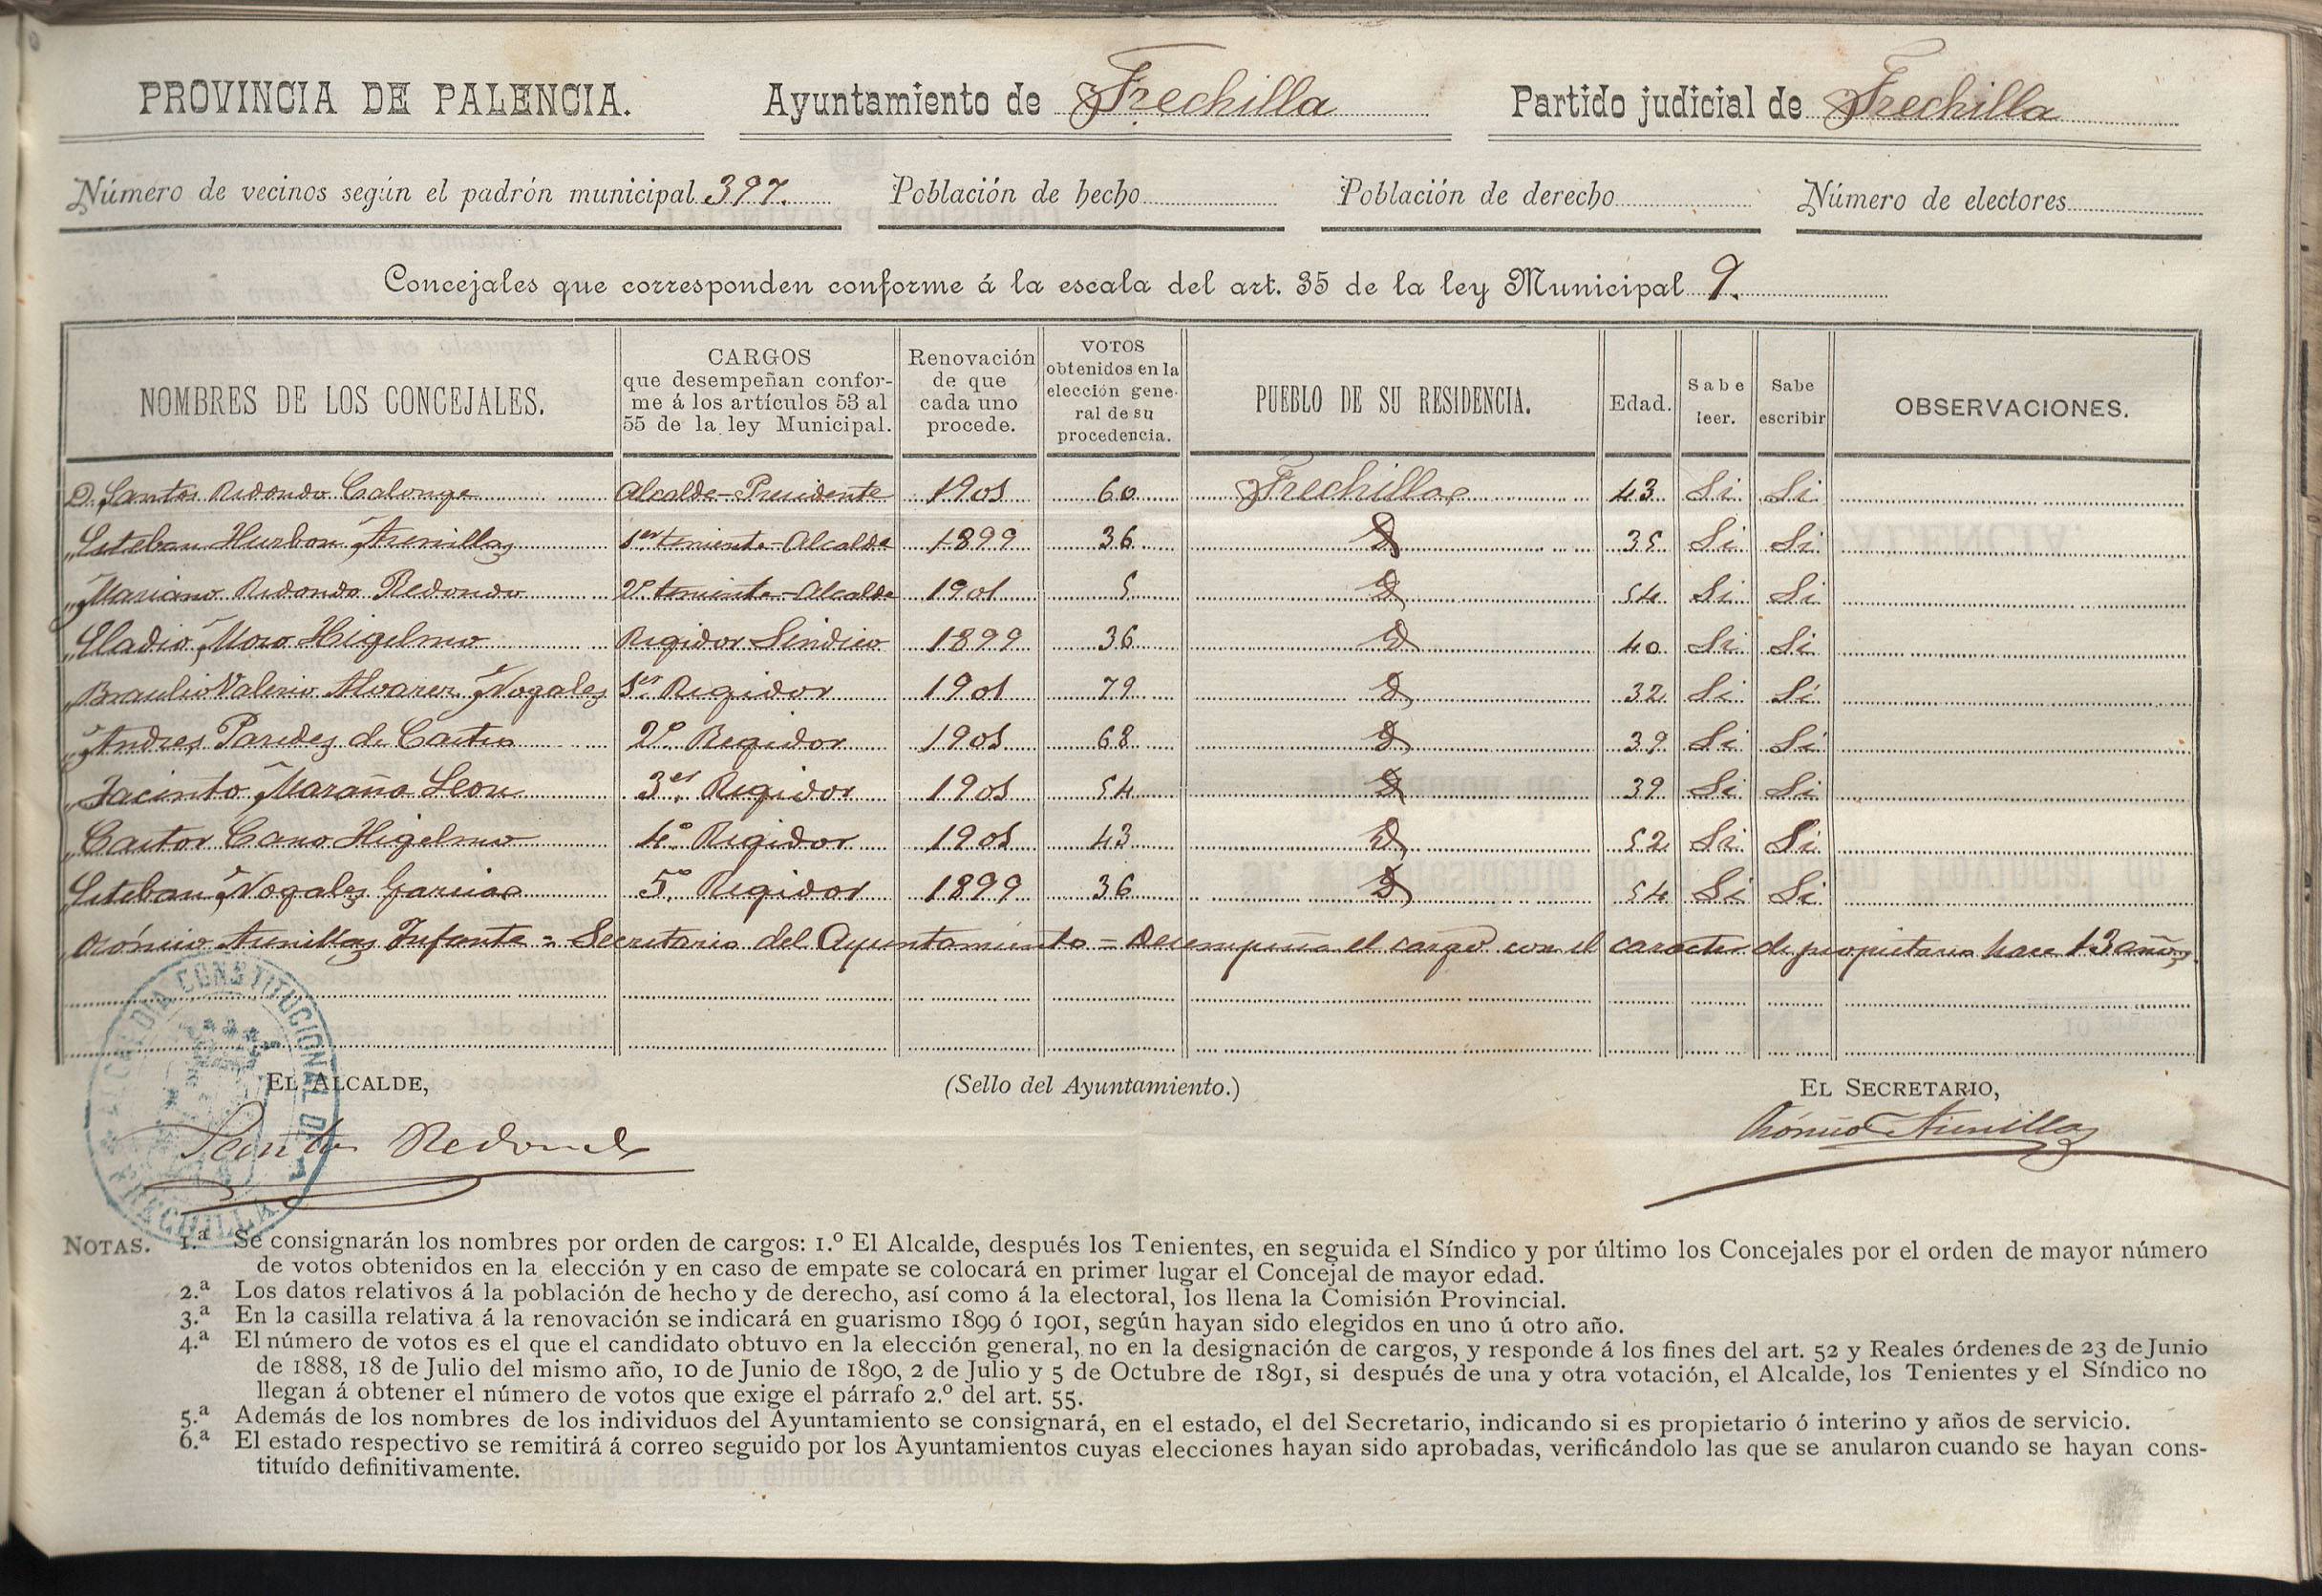 PROVINCIA DE PALENCIA. Ayuntamiento de Frechilla Partido judicial de Frechilla
Número de vecinos según el padrón municipal 397. Población de hecho Población de derecho Número de electores
Concejales que corresponden conforme á la escala del art. 35 de la ley Municipal 9.
NOMBRES DE LOS CONCEJALES. CARGOS que desempeñan confor- me á los artículos 53 al 55 de la ley Municipal. Renovación de que cada uno procede. VOTOS obtenidos en la elección gene- ral de su procedencia. PUEBLO DE SU RESIDENCIA. Edad. Sabe leer. Sabe escribir OBSERVACIONES.
D. Santos Redondo Calonge Alcalde-Presidente 1901 60 Frechilla 43 Si Si
" Esteban Hurbon Arenillas 1er teniente-Alcalde 1899 36 D 35 Si Si
" Mariano Redondo Redondo 2º teniente-Alcalde 1901 5 D 54 Si Si
" Eladio Moro Higelmo Regidor Sindico 1899 36 D 40 Si Si
" Braulio Valerio Alvarez Nogales 1er Regidor 1901 79 D 32 Si Si
" Andres Paredes de Castro 2º Regidor 1901 68 D 39 Si Si
" Jacinto Maraña Leon 3er Regidor 1901 54 D 39 Si Si
" Castor Cano Higelmo 4º Regidor 1901 43 D 52 Si Si
" Esteban Nogales Garcia 5º Regidor 1899 36 D 54 Si Si
" Arenillas Infante = Secretario del Ayuntamiento = Desempeña el cargo con el caracter de propietario hace 13 años
ALCALDIA CONSTITUCIONAL DE FRECHILLA
EL ALCALDE, (Sello del Ayuntamiento.) EL SECRETARIO,
Santos Redondo Arenillas
NOTAS. 1.ª Se consignarán los nombres por orden de cargos: 1.º El Alcalde, después los Tenientes, en seguida el Síndico y por último los Concejales por el orden de mayor número
de votos obtenidos en la elección y en caso de empate se colocará en primer lugar el Concejal de mayor edad.
2.ª Los datos relativos á la población de hecho y de derecho, así como á la electoral, los llena la Comisión Provincial.
3.ª En la casilla relativa á la renovación se indicará en guarismo 1899 ó 1901, según hayan sido elegidos en uno ú otro año.
4.ª El número de votos es el que el candidato obtuvo en la elección general, no en la designación de cargos, y responde á los fines del art. 52 y Reales órdenes de 23 de Junio
de 1888, 18 de Julio del mismo año, 10 de Junio de 1890, 2 de Julio y 5 de Octubre de 1891, si después de una y otra votación, el Alcalde, los Tenientes y el Síndico no
llegan á obtener el número de votos que exige el párrafo 2.º del art. 55.
5.ª Además de los nombres de los individuos del Ayuntamiento se consignará, en el estado, el del Secretario, indicando si es propietario ó interino y años de servicio.
6.ª El estado respectivo se remitirá á correo seguido por los Ayuntamientos cuyas elecciones hayan sido aprobadas, verificándolo las que se anularon cuando se hayan cons-
tituído definitivamente.